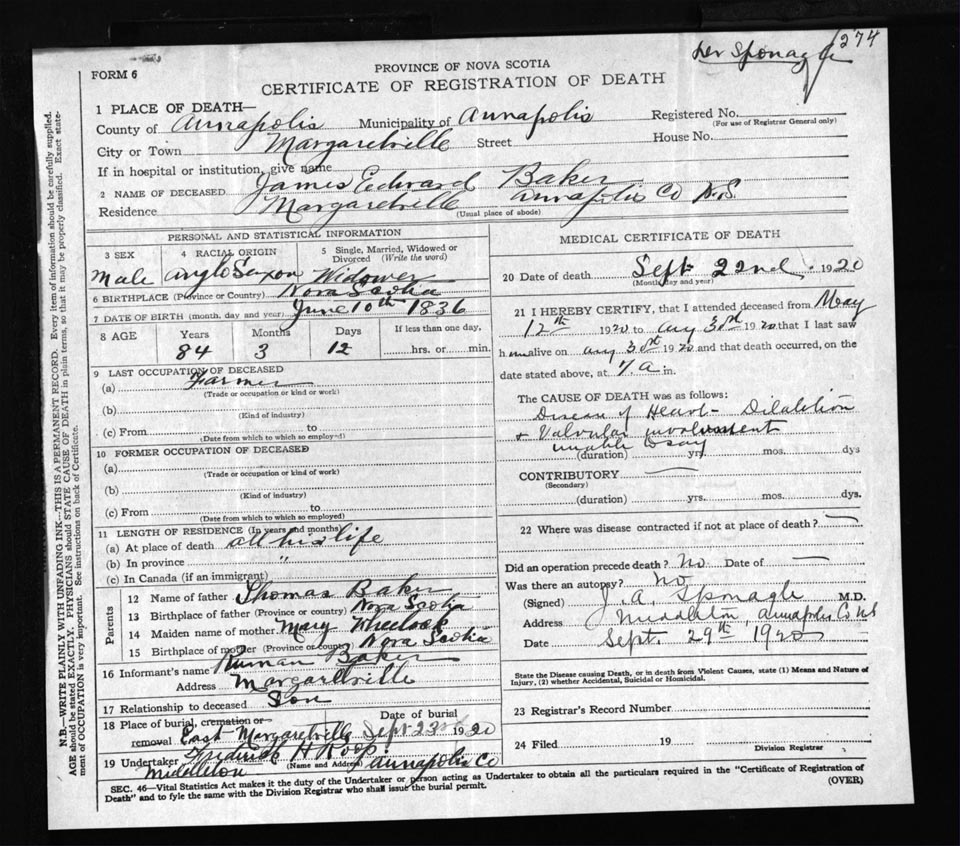 Dr Sponagle 274
FORM 6
PROVINCE OF NOVA SCOTIA
CERTIFICATE OF REGISTRATION OF DEATH
1 PLACE OF DEATH—
County of Annapolis Municipality of Annapolis Registered No.
(For use of Registrar General only)
City or Town Margaretville Street House No.
If in hospital or institution, give name
2 NAME OF DECEASED James Edward Baker
Residence Margaretville Annapolis Co N.S.
(Usual place of abode)
PERSONAL AND STATISTICAL INFORMATION
3 SEX 4 RACIAL ORIGIN 5 Single, Married, Widowed or Divorced (Write the word)
Male Anglo Saxon Widower
6 BIRTHPLACE (Province or Country) Nova Scotia
7 DATE OF BIRTH (month, day and year) June 10th 1836
8 AGE Years Months Days If less than one day,
84 3 12 hrs. or min.
9 LAST OCCUPATION OF DECEASED
(a) Farmer
(Trade or occupation or kind or work)
(b)
(Kind of industry)
(c) From to
(Date from which to which so employed)
10 FORMER OCCUPATION OF DECEASED
(a)
(Trade or occupation or kind of work)
(b)
(Kind of industry)
(c) From to
(Date from which to which so employed)
11 LENGTH OF RESIDENCE (In years and months)
(a) At place of death all his life
(b) In province "
(c) In Canada (if an immigrant)
Parents
12 Name of father Thomas Baker
13 Birthplace of father (Province or country) Nova Scotia
14 Maiden name of mother Mary Wheelock
15 Birthplace of mother (Province or country) Nova Scotia
16 Informant's name Baker
Address Margaretville
17 Relationship to deceased Son
18 Place of burial, cremation or removal East Margaretville Date of burial Sept 23 1920
19 Undertaker Frederick H Roop
(Name and Address)
Middleton Annapolis Co
MEDICAL CERTIFICATE OF DEATH
20 Date of death Sept 22nd 1920
(Month, day and year)
21 I HEREBY CERTIFY, that I attended deceased from May
12th 1920 to Aug 30th 1920 that I last saw
h im alive on Aug 30th 1920 and that death occurred, on the
date stated above, at 7. a m.
The CAUSE OF DEATH was as follows:
Disease of Heart - Dilatation
+ Valvular involvement
unable to say
(duration) yrs. mos. dys
CONTRIBUTORY
(Secondary)
(duration) yrs. mos. dys.
22 Where was disease contracted if not at place of death? —
Did an operation precede death? No Date of —
Was there an autopsy? No
(Signed) J. A. Sponagle M.D.
Address Middleton, Annapolis Co NS
Date Sept. 29th 1920
State the Disease causing Death, or in death from Violent Causes, state (1) Means and Nature of
Injury, (2) whether Accidental, Suicidal or Homicidal.
23 Registrar's Record Number
24 Filed 19
Division Registrar
SEC. 46—Vital Statistics Act makes it the duty of the Undertaker or person acting as Undertaker to obtain all the particulars required in the "Certificate of Registration of
Death" and to fyle the same with the Division Registrar who shall issue the burial permit.
(OVER)
N.B.—WRITE PLAINLY WITH UNFADING INK—THIS IS A PERMANENT RECORD. Every item of information should be carefully supplied.
AGE should be stated EXACTLY. PHYSICIANS should STATE CAUSE OF DEATH in plain terms, so that it may be properly classified. Exact state-
ment of OCCUPATION is very important. See instructions on back of Certificate.